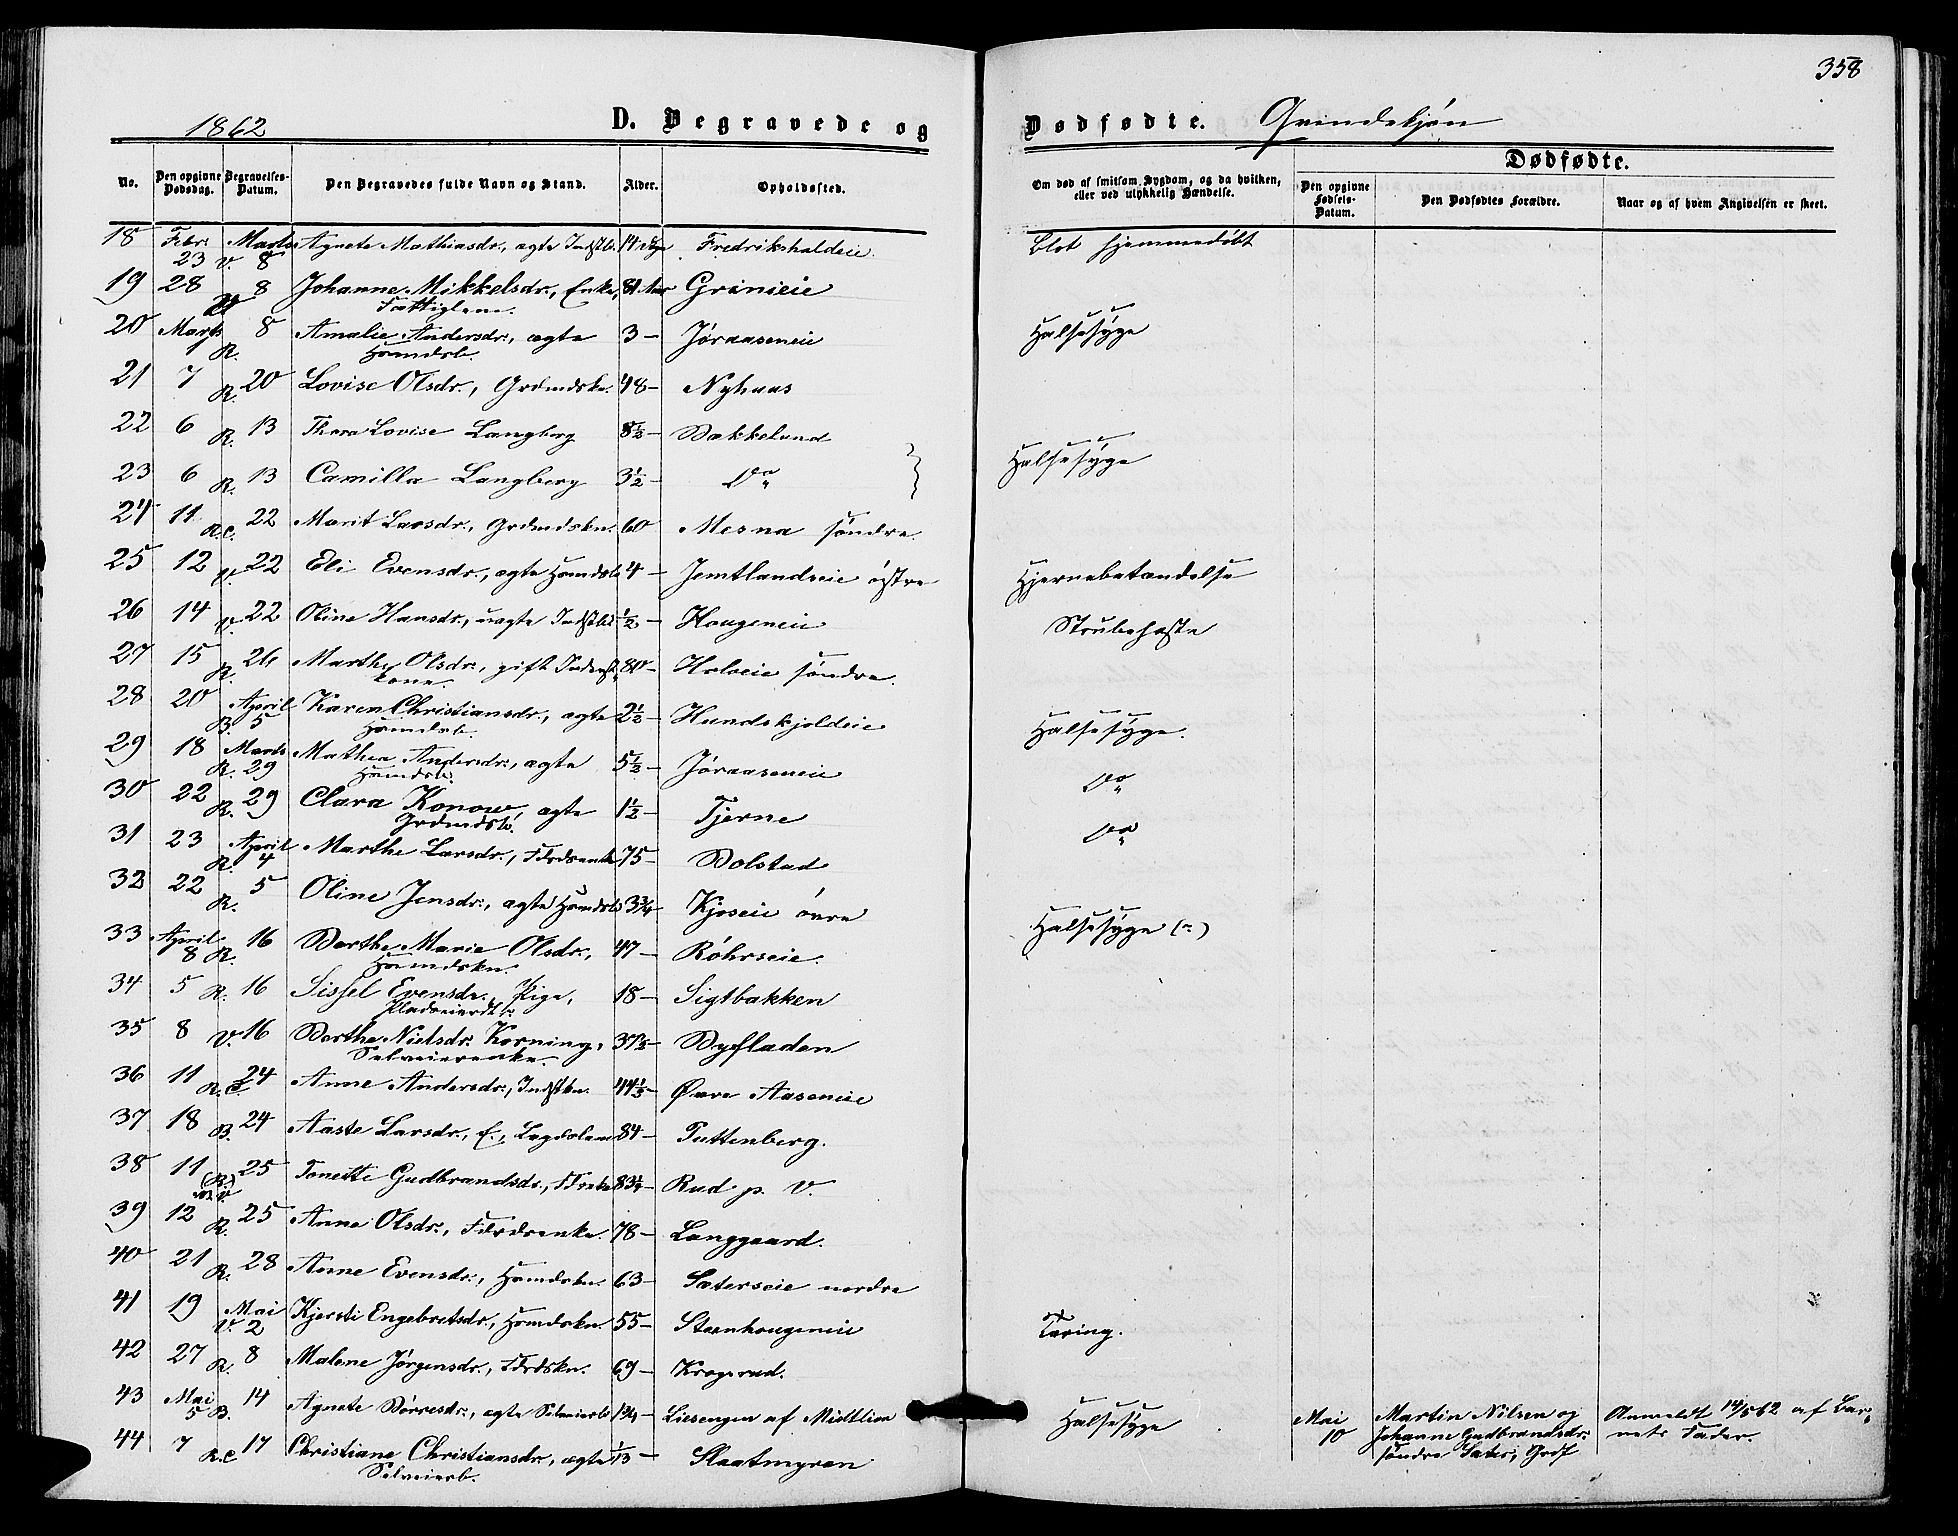 358
1862
D. Begravede og
Dødfødte. Qvindekjøn
No.
Den opgivne Dødsdag.
Begravelses-Datum.
Den Begravedes fulde Navn og Stand.
Alder.
Opholdssted.
Om død af smitsom Sygdom, og da hvilken, eller ved ulykkelig Hændelse.
Dødfødte.
Den opgivne Fødsels-Datum.
Den Dødfødtes Forældre.
Naar og af hvem Angivelsen er skeet.
18 Febr. 23 V. Marts 8 Agnete Mathiasdr., ægte Indstb. 14 Dage Fredrikshaldeie. blot hjemmedøbt
19 28 8 Johanne Mikkelsdr., Enke, Fattiglem. 81 Aar Grinieie
20 Marts R. 8 Amalie Andersdr., ægte Hsmdsb. 3 — Jøraaseneie Halssyge
21 7 R. 20 Lovise Olsdr., Grdmdskn. 48 — Nyhuus
22 6 R. 13 Thora Lovise Langberg 8½ — Bækkelund
23 6 R. 13 Camilla Langberg 3½ — Do Halssyge
24 11 R.C. 22 Marit Larsdr., Grdmdskn. 60 Mesna søndre.
25 12 V. 22 Eli Evensdr., ægte Hsmdsb. 4 — Jemtlandseie østre Hjernebetændelse
26 14 V. 22 Oline Hansdr., uægte Indstbs. ½ — Haugeneie Strubehoste
27 15 R. 26 Marthe Olsdr., gift Inderstkone. 80 — Holseie søndre.
28 20 B. April 5 Karen Christiansdr., ægte Hsmdsb. 2½ — Hundskjoldeie Halssyge.
29 18 R. Marts 29 Mathea Andersdr., ægte Hsmdsb. 5½ — Jøraaseneie Do
30 22 R. 29 Clara Konow, ægte Grdmdsb. 1½ — Tjerne Do
31 23 R. April 4 Marthe Larsdr., Fdrdsenke 75 — Bolstad
32 22 R. 5 Oline Jensdr., ægte Hsmdsb. 3¾ Kjoseie øvre
33 April 8 R. 16 Berthe Marie Olsdr., Hsmdskn. 47 — Röhrseie. Halssyge (?)
34 5 R. 16 Sissel Evensdr. Pige, Pladseierdtr. 18 — Sigtbakken
35 8 V. 16 Berthe Nielsdr. Korning, Selveierenke. 37½ — Byfladen
36 11 R.C. 24 Anne Andersdr., Indstkn. 44½ — Øvre Aaseneie
37 18 B. 24 Aaste Larsdr., E., Lægdslem 84 — Tuttenberg.
38 11 (R.) V. 25 Tonette Gudbrandsdr., 83¾ Rud p. V.
39 12 R. 25 Anne Olsdr., Fdrdsenke. 78 — Langgaard.
40 21 R. 28 Anne Evensdr., Hsmdskn. 63 — Sæterseie nordre
41 19 V. Mai 2 Kjersti Engebretsdr., Hsmdskn. 55 — Steenhaugeneie Tæring.
42 27 R. 8 Malene Jørgensdr., Fdrdskn. 69 — Kragerud.
43 Mai 5 B. 14 Agnete Børresdr., ægte Selveierb. 1¾ — Liesengen af Midtlien Halssyge
Mai 10 Martin Nilsen og Johanne Gudbrandsdr. søndre Sæter, Grdf. Anmeldt 14/5 62 af Barnets Fader.
44 7 R.C 17 Christiane Christiansdr., ægte Selveierb. ⅓ — Slaatmyren